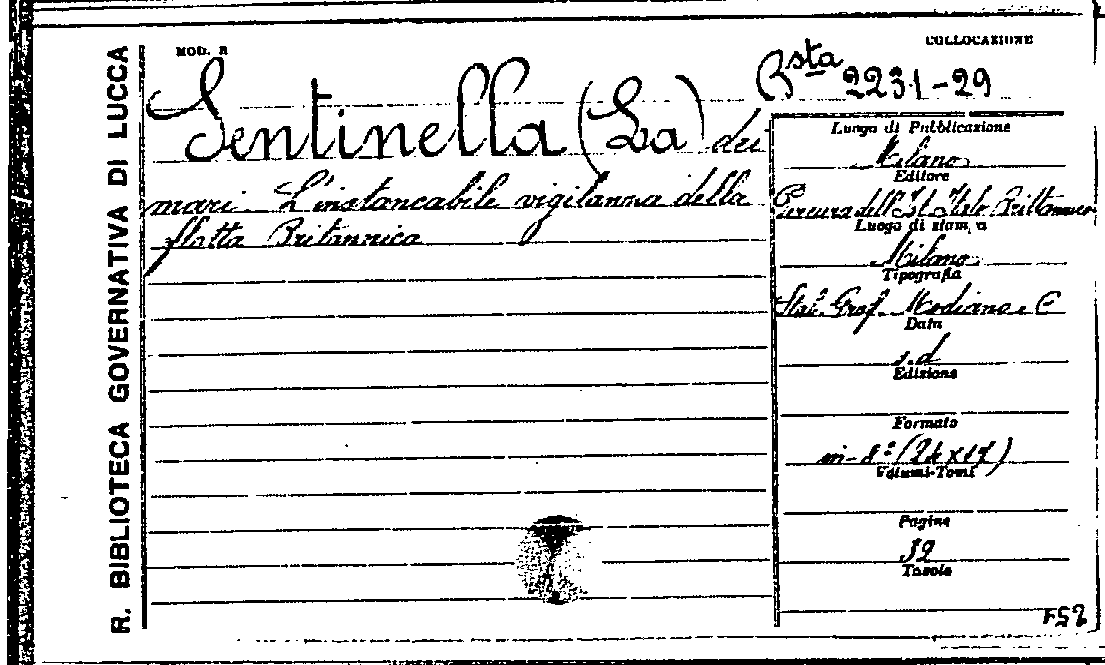 R. BIBLIOTECA GOVERNATIVA DI LUCCA
MOD. R
COLLOCAZIONE
Bsta 2231-29
Sentinella (La) dei
mari. L'instancabile vigilanza della
flotta Britannica
Luogo di Pubblicazione
Milano
Editore
dell'Ist. Italo Brittannico
Luogo di stampa
Milano
Tipografia
Stab. Graf. Modiano e C
Data
s.d
Edizione
Formato
in-8° (24x17)
Volumi-Tomi
Pagine
39
Tavole
F52